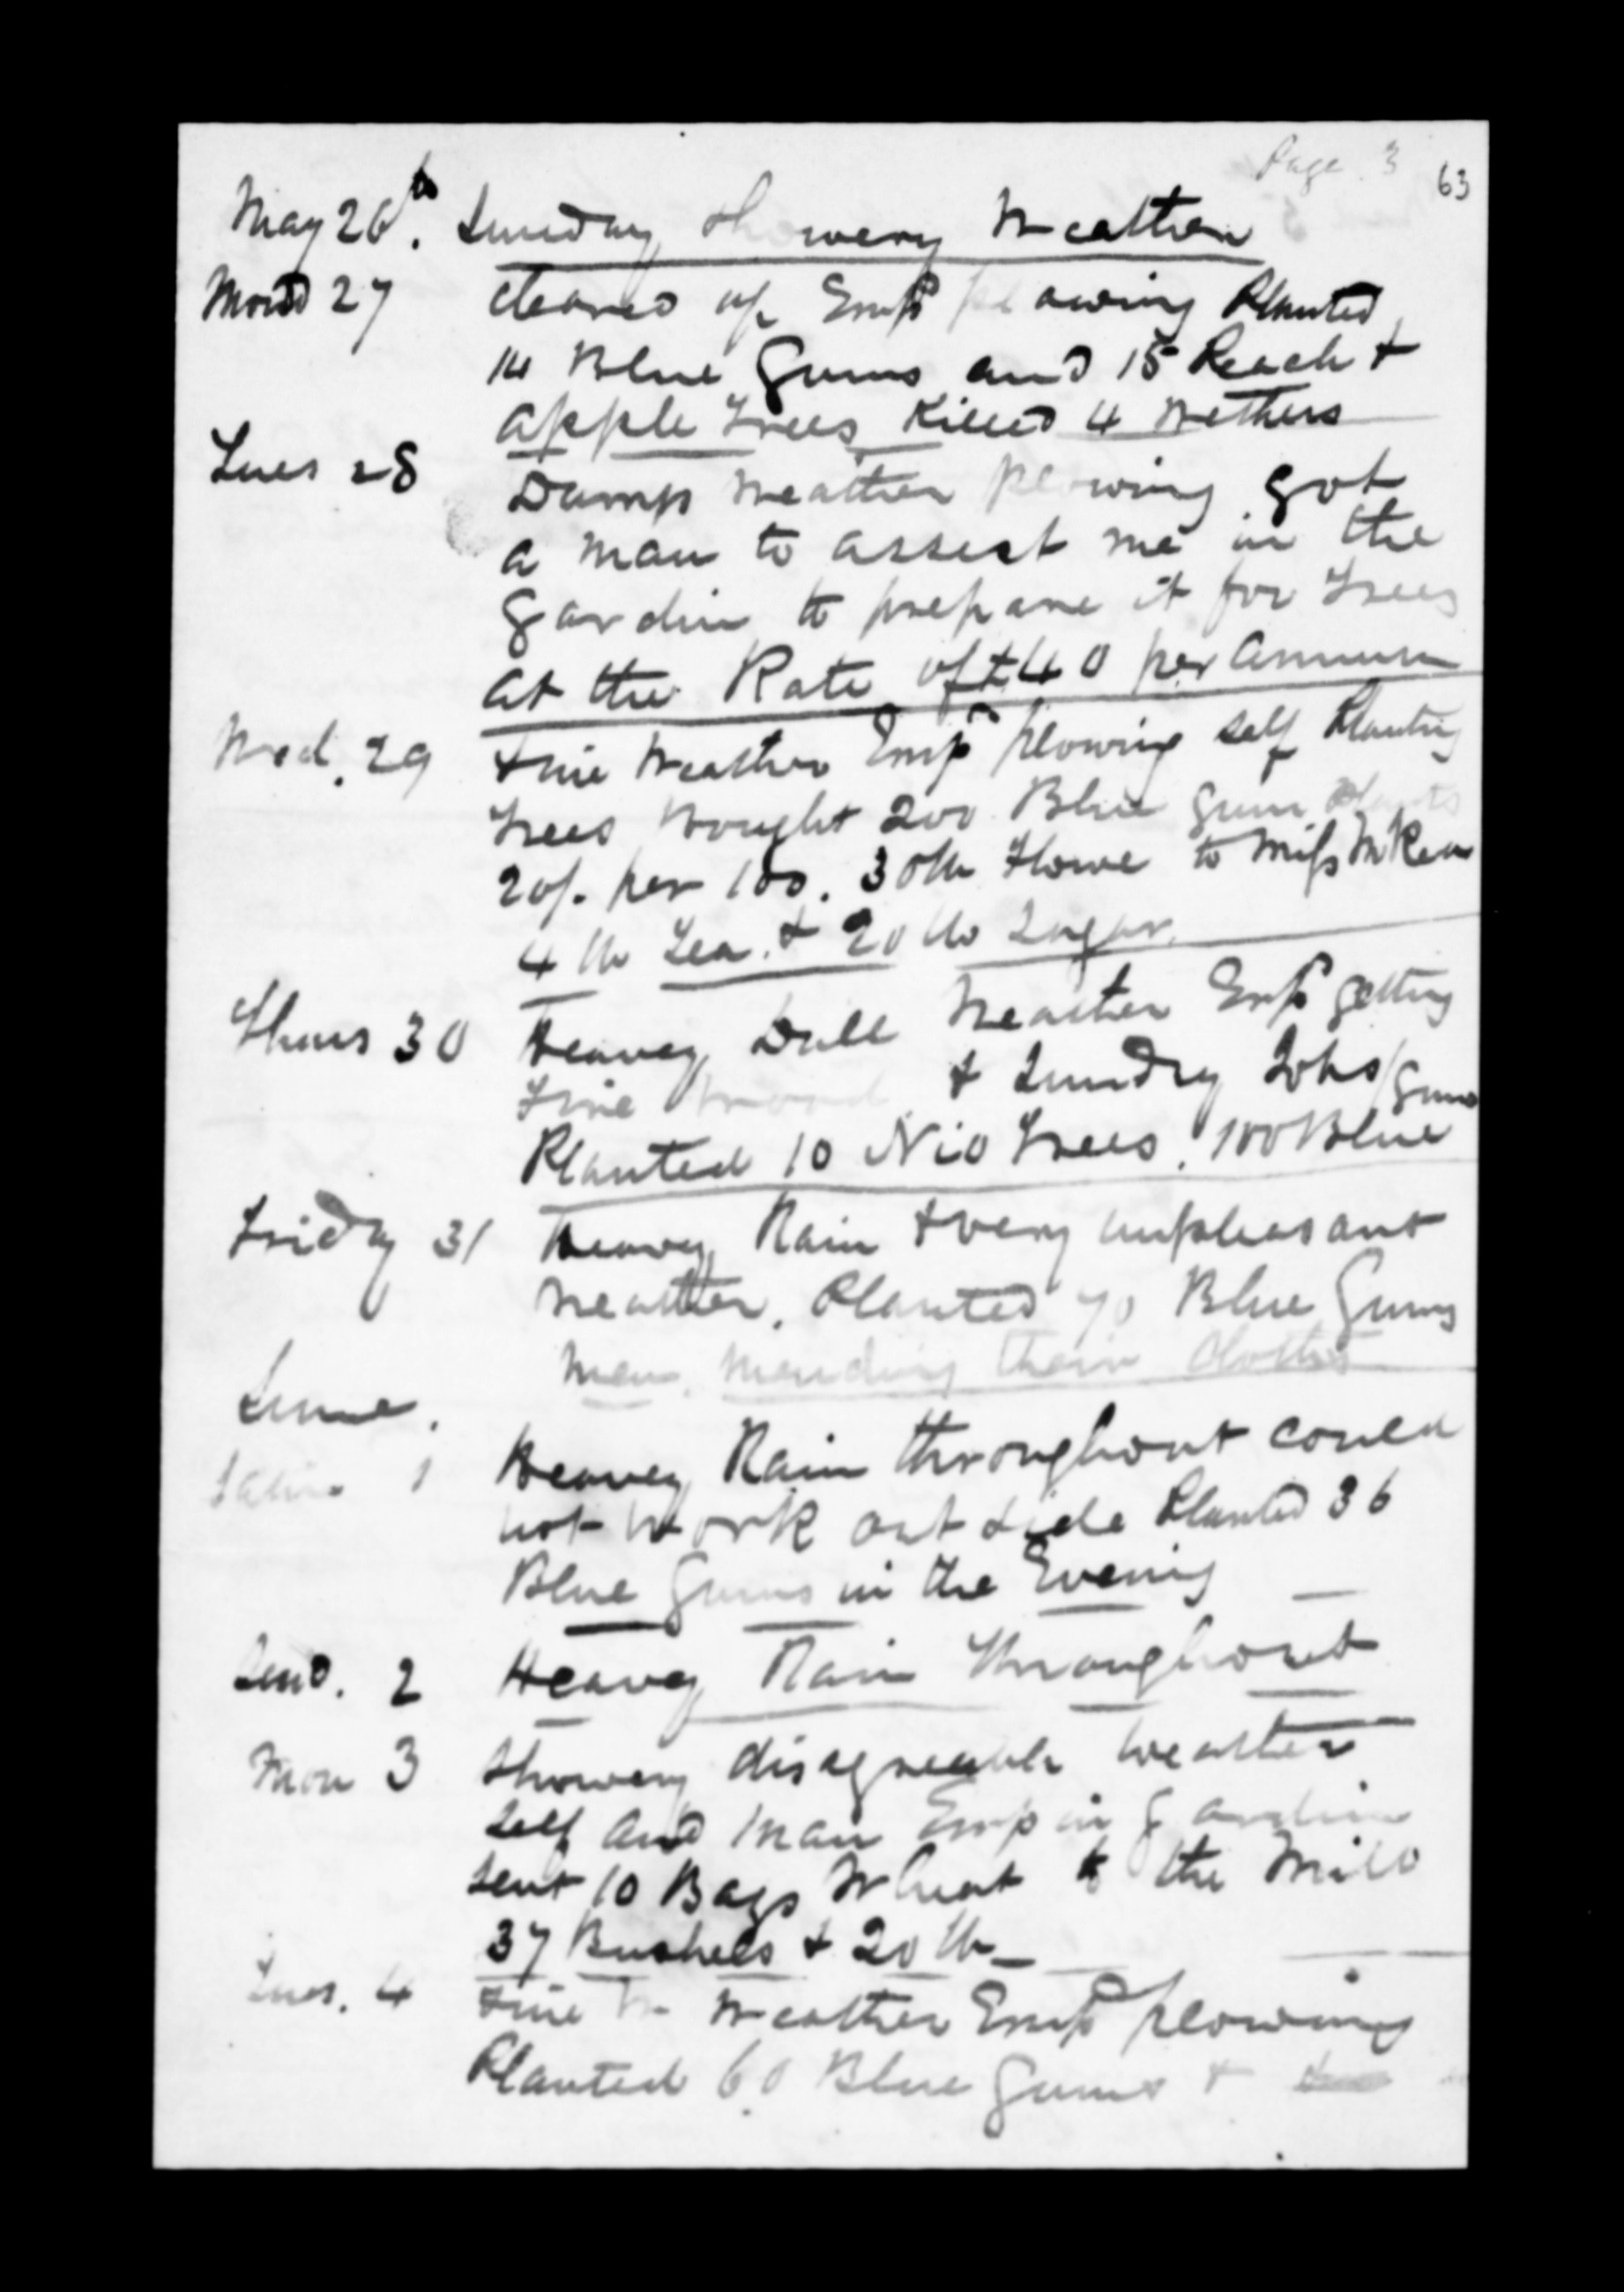 Page 3 63
May 26th. Sunday Showery Weather
Mond 27 Cleared up Empd plowing Planted
14 Blue Gums and 15 Peach &
apple Trees Killed 4 Wethers
Tues 28 Damp Weather Plowing got
a man to assest me in the
gardin to prepare it for Trees
at the Rate of £40 per annum
Wed. 29 Fine Weather Empd plowing self Planting
Trees Bought 200 Blue gum Plants
20/- per 100. 30 lb Flowe to Miss McRea
4 lb Tea. & 20 lb Sugar.
Thurs 30 Heavey Dull Weather Empd getting
Fire Wood & Sundry Jobs
Planted 10 Trees. 100 Blue /gums
Friday 31 Heavey Rain & very unpleasant
Weather. Planted 70 Blue Gums
Men mending their Clothes
June.
1 Heavey Rain throughout could
not Work out side Planted 36
Blue Gums in the Evening
Sund. 2 Heavey Rain Throughout
Mon 3 Showery disagreeable weather
Self and Man Emp in gardin
sent 10 Bags Wheat to the Mill
37 Bushels & 20 lb
Tues. 4 Fine W Weather Empd plowing
Planted 60 Blue Gums &